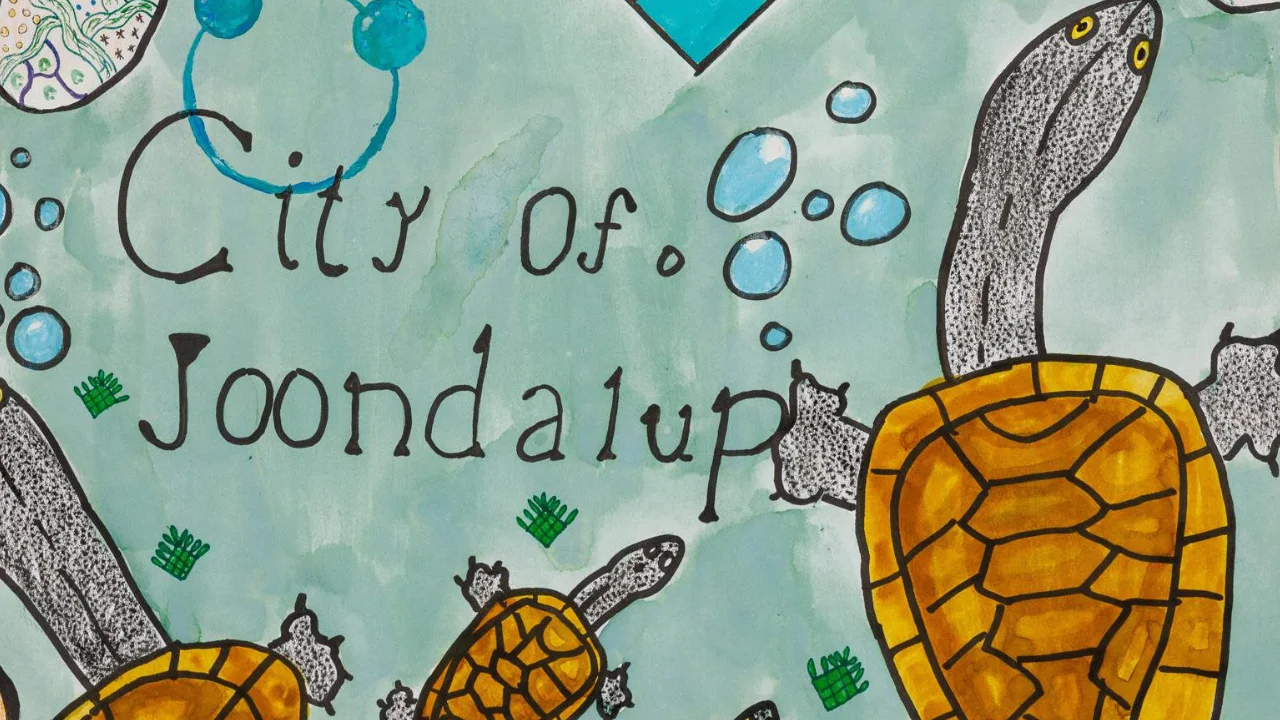 City of.
Joondalup